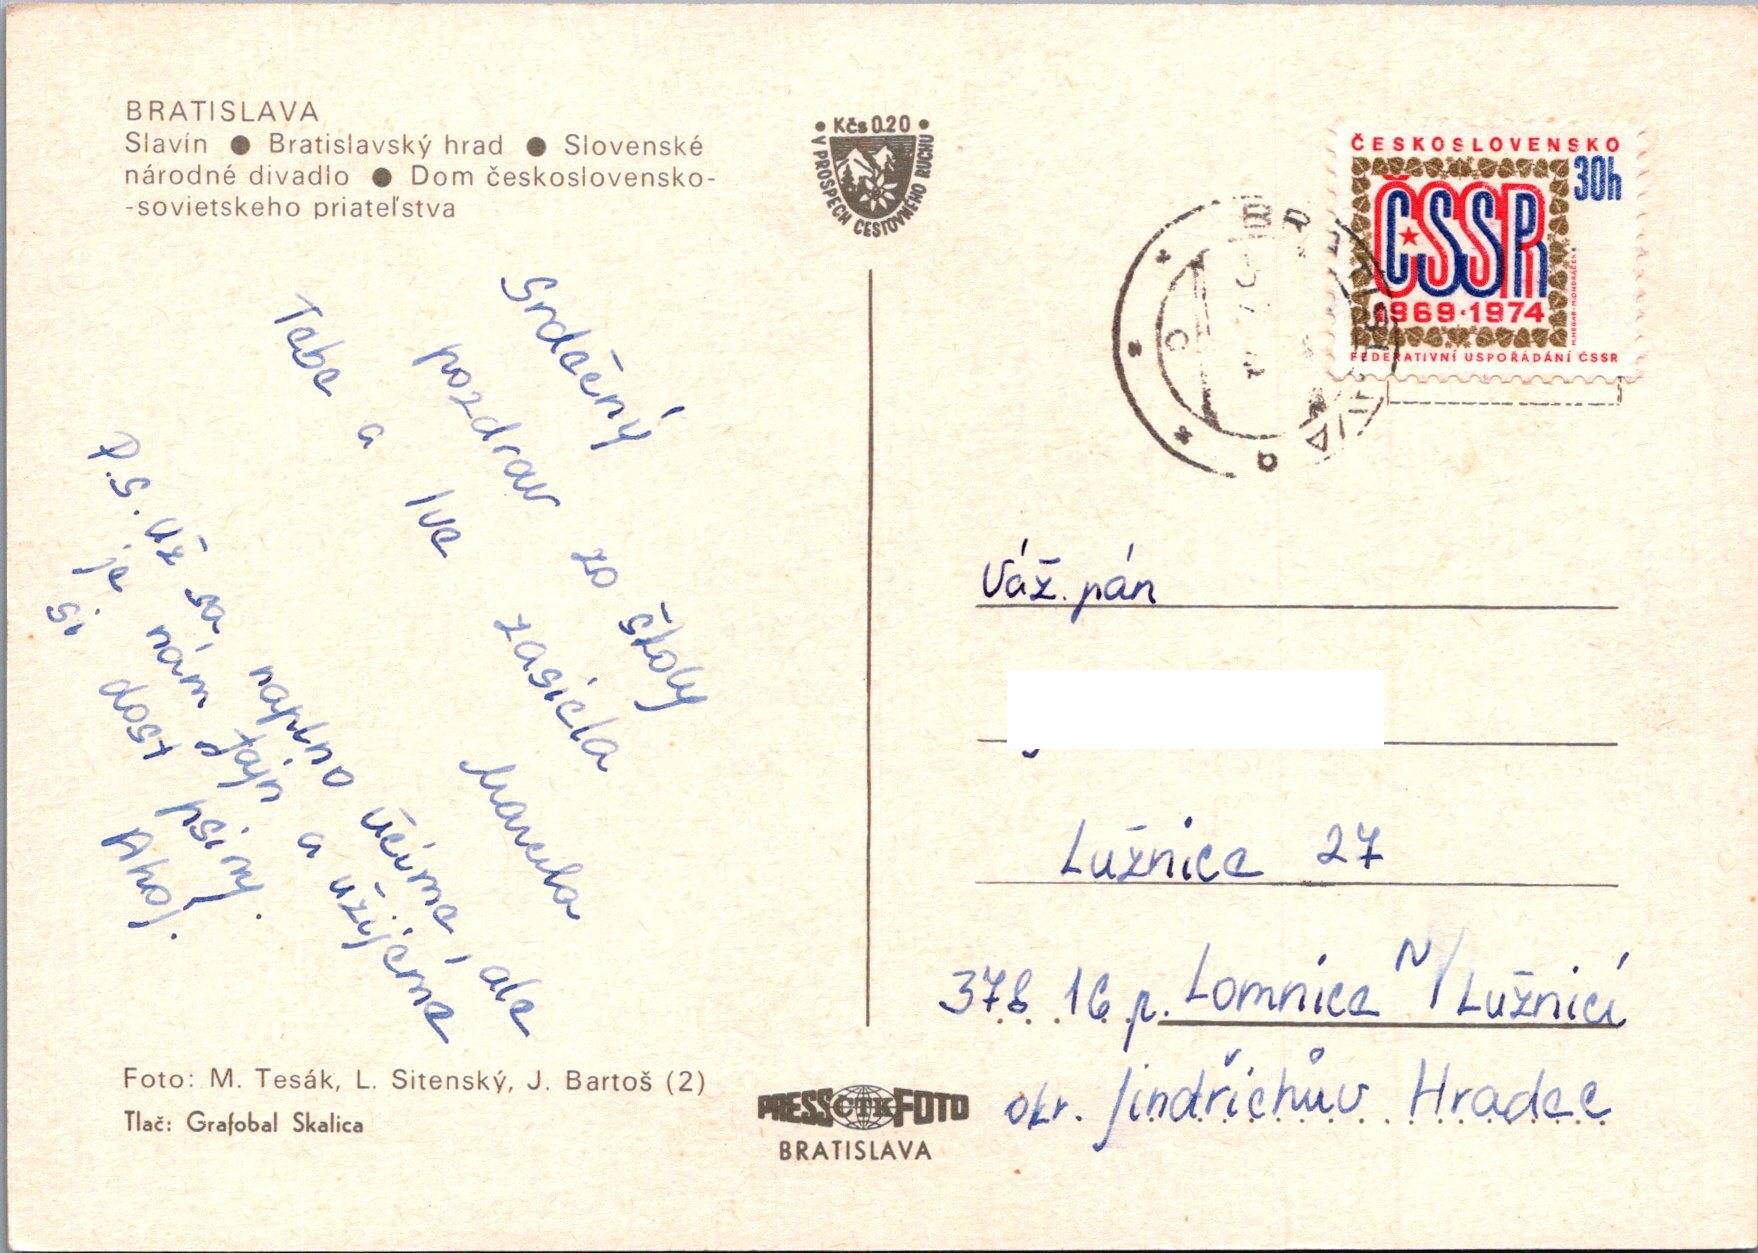 BRATISLAVA
Slavín ● Bratislavský hrad ● Slovenské
národné divadlo ● Dom československo-
-sovietskeho priateľstva
• Kčs 0.20 •
V PROSPECH CESTOVNÉHO RUCHU
ČESKOSLOVENSKO
30h
ČSSR
1969·1974
FEDERATIVNÍ USPOŘÁDÁNÍ ČSSR
Srdečný
pozdrav zo školy
Tebe a Ive zasiela
Marcela
P.S. Už sa naplno učíme, ale
je nám fajn a užijeme
si dost psiny.
Ahoj.
Váž. pán
Lužnice 27
378 16 p. Lomnice N/Lužnicí
okr. Jindřichův Hradec
Foto: M. Tesák, L. Sitenský, J. Bartoš (2)
Tlač: Grafobal Skalica
PRESS ČTK FOTO
BRATISLAVA